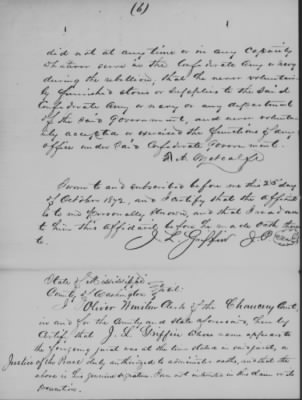 (6)
did not at any time or in any capacity
whatever serve in the Confederate Army or navy
during the rebellion, that he never voluntari
ly furnished stores or supplies to the said
Confederate Army or navy or any department
of the said Government, and never volunta
rily accepted or exercised the functions of any
office under said Confederate Government.
Metcalfe
Sworn to and subscribed before me this 25 day
of October 1872, and I certify that the affiant
is to me Personally Known, and that I read over
to him this affidavit before he made oath there
to.
J. L. Griffin J.P.
State of Mississippi
County of Washington
I Oliver Winslow Clerk of the Chancery Court,
in and for the County and State aforesaid, hereby
Certify that J. L. Griffin whose name appears to
the foregoing jurat was at the time stated
Justice of the Peace duly authorized to administer oaths, and that the
above is his genuine signature I am not interested in this claim or its
prosecution.